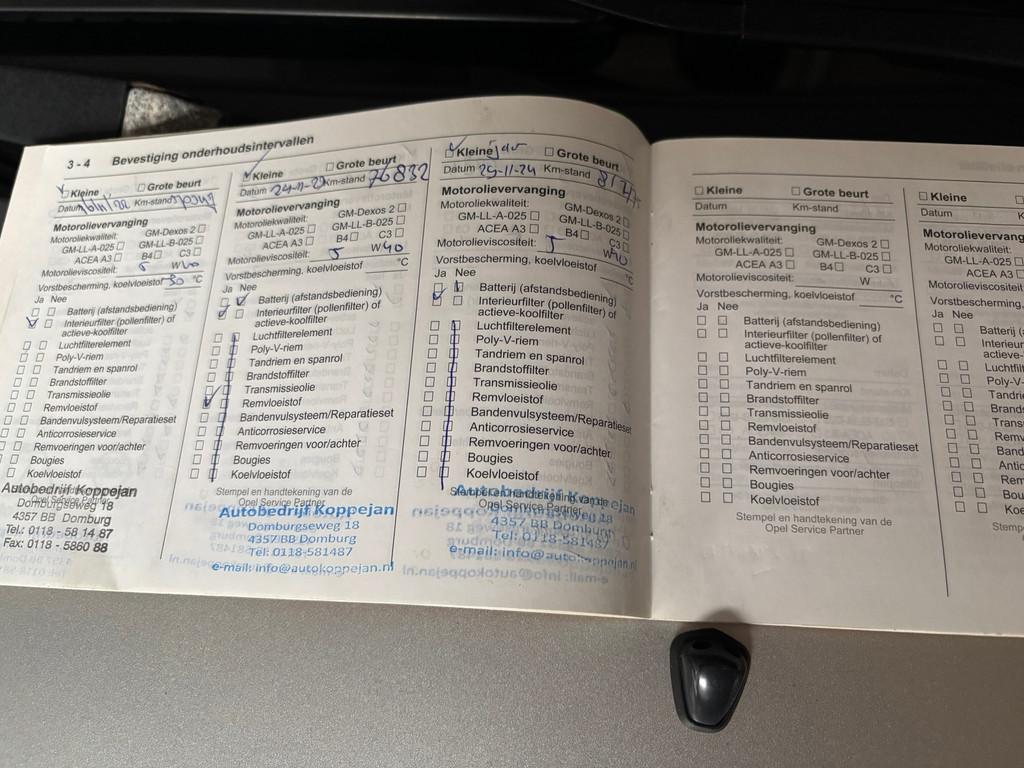 3 - 4 Bevestiging onderhoudsintervallen
Kleine Grote beurt
Datum Km-stand
Motorolievervanging
Motoroliekwaliteit: GM-Dexos 2
GM-LL-A-025 GM-LL-B-025
ACEA A3 B4 C3
Motorolieviscositeit: 5 W40
Vorstbescherming, koelvloeistof 30 °C
Ja Nee
Batterij (afstandsbediening)
Interieurfilter (pollenfilter) of
actieve-koolfilter
Luchtfilterelement
Poly-V-riem
Tandriem en spanrol
Brandstoffilter
Transmissieolie
Remvloeistof
Bandenvulsysteem/Reparatieset
Anticorrosieservice
Remvoeringen voor/achter
Bougies
Koelvloeistof
Opel Service Partner
Autobedrijf Koppejan
Domburgseweg 18
4357 BB Domburg
Tel.: 0118 - 58 14 87
Fax: 0118 - 5860 88
Kleine Grote beurt
Datum Km-stand 76832
Motorolievervanging
Motoroliekwaliteit: GM-Dexos 2
GM-LL-A-025 GM-LL-B-025
ACEA A3 B4 C3
Motorolieviscositeit: 5 W40
Vorstbescherming, koelvloeistof °C
Ja Nee
Batterij (afstandsbediening)
Interieurfilter (pollenfilter) of
actieve-koolfilter
Luchtfilterelement
Poly-V-riem
Tandriem en spanrol
Brandstoffilter
Transmissieolie
Remvloeistof
Bandenvulsysteem/Reparatieset
Anticorrosieservice
Remvoeringen voor/achter
Bougies
Koelvloeistof
Stempel en handtekening van de
Opel Service Partner
Autobedrijf Koppejan
Domburgseweg 18
4357 BB Domburg
Tel: 0118-581487
e-mail: info@autokoppejan.nl
Kleine Grote beurt
Datum 25-11-24 Km-stand
Motorolievervanging
Motoroliekwaliteit: GM-Dexos 2
GM-LL-A-025 GM-LL-B-025
ACEA A3 B4 C3
Motorolieviscositeit: 5 W40
Vorstbescherming, koelvloeistof °C
Ja Nee
Batterij (afstandsbediening)
Interieurfilter (pollenfilter) of
actieve-koolfilter
Luchtfilterelement
Poly-V-riem
Tandriem en spanrol
Brandstoffilter
Transmissieolie
Remvloeistof
Bandenvulsysteem/Reparatieset
Anticorrosieservice
Remvoeringen voor/achter
Bougies
Koelvloeistof
Opel Service Partner
Autobedrijf Koppejan
Domburgseweg 18
4357 BB Domburg
Tel: 0118-581487
e-mail: info@autokoppejan.nl
Kleine Grote beurt
Datum Km-stand
Motorolievervanging
Motoroliekwaliteit: GM-Dexos 2
GM-LL-A-025 GM-LL-B-025
ACEA A3 B4 C3
Motorolieviscositeit: W
Vorstbescherming, koelvloeistof °C
Ja Nee
Batterij (afstandsbediening)
Interieurfilter (pollenfilter) of
actieve-koolfilter
Luchtfilterelement
Poly-V-riem
Tandriem en spanrol
Brandstoffilter
Transmissieolie
Remvloeistof
Bandenvulsysteem/Reparatieset
Anticorrosieservice
Remvoeringen voor/achter
Bougies
Koelvloeistof
Stempel en handtekening van de
Opel Service Partner
Kleine
Datum K
Motorolievervang
Motoroliekwaliteit:
GM-LL-A-025
ACEA A3
Motorolieviscositeit
Vorstbescherming,
Ja Nee
Batterij (a
Interieur
actieve-
Luchtfil
Poly-V
Tandri
Brand
Trans
Remv
Band
Antic
Rem
Bou
Koe
Ste